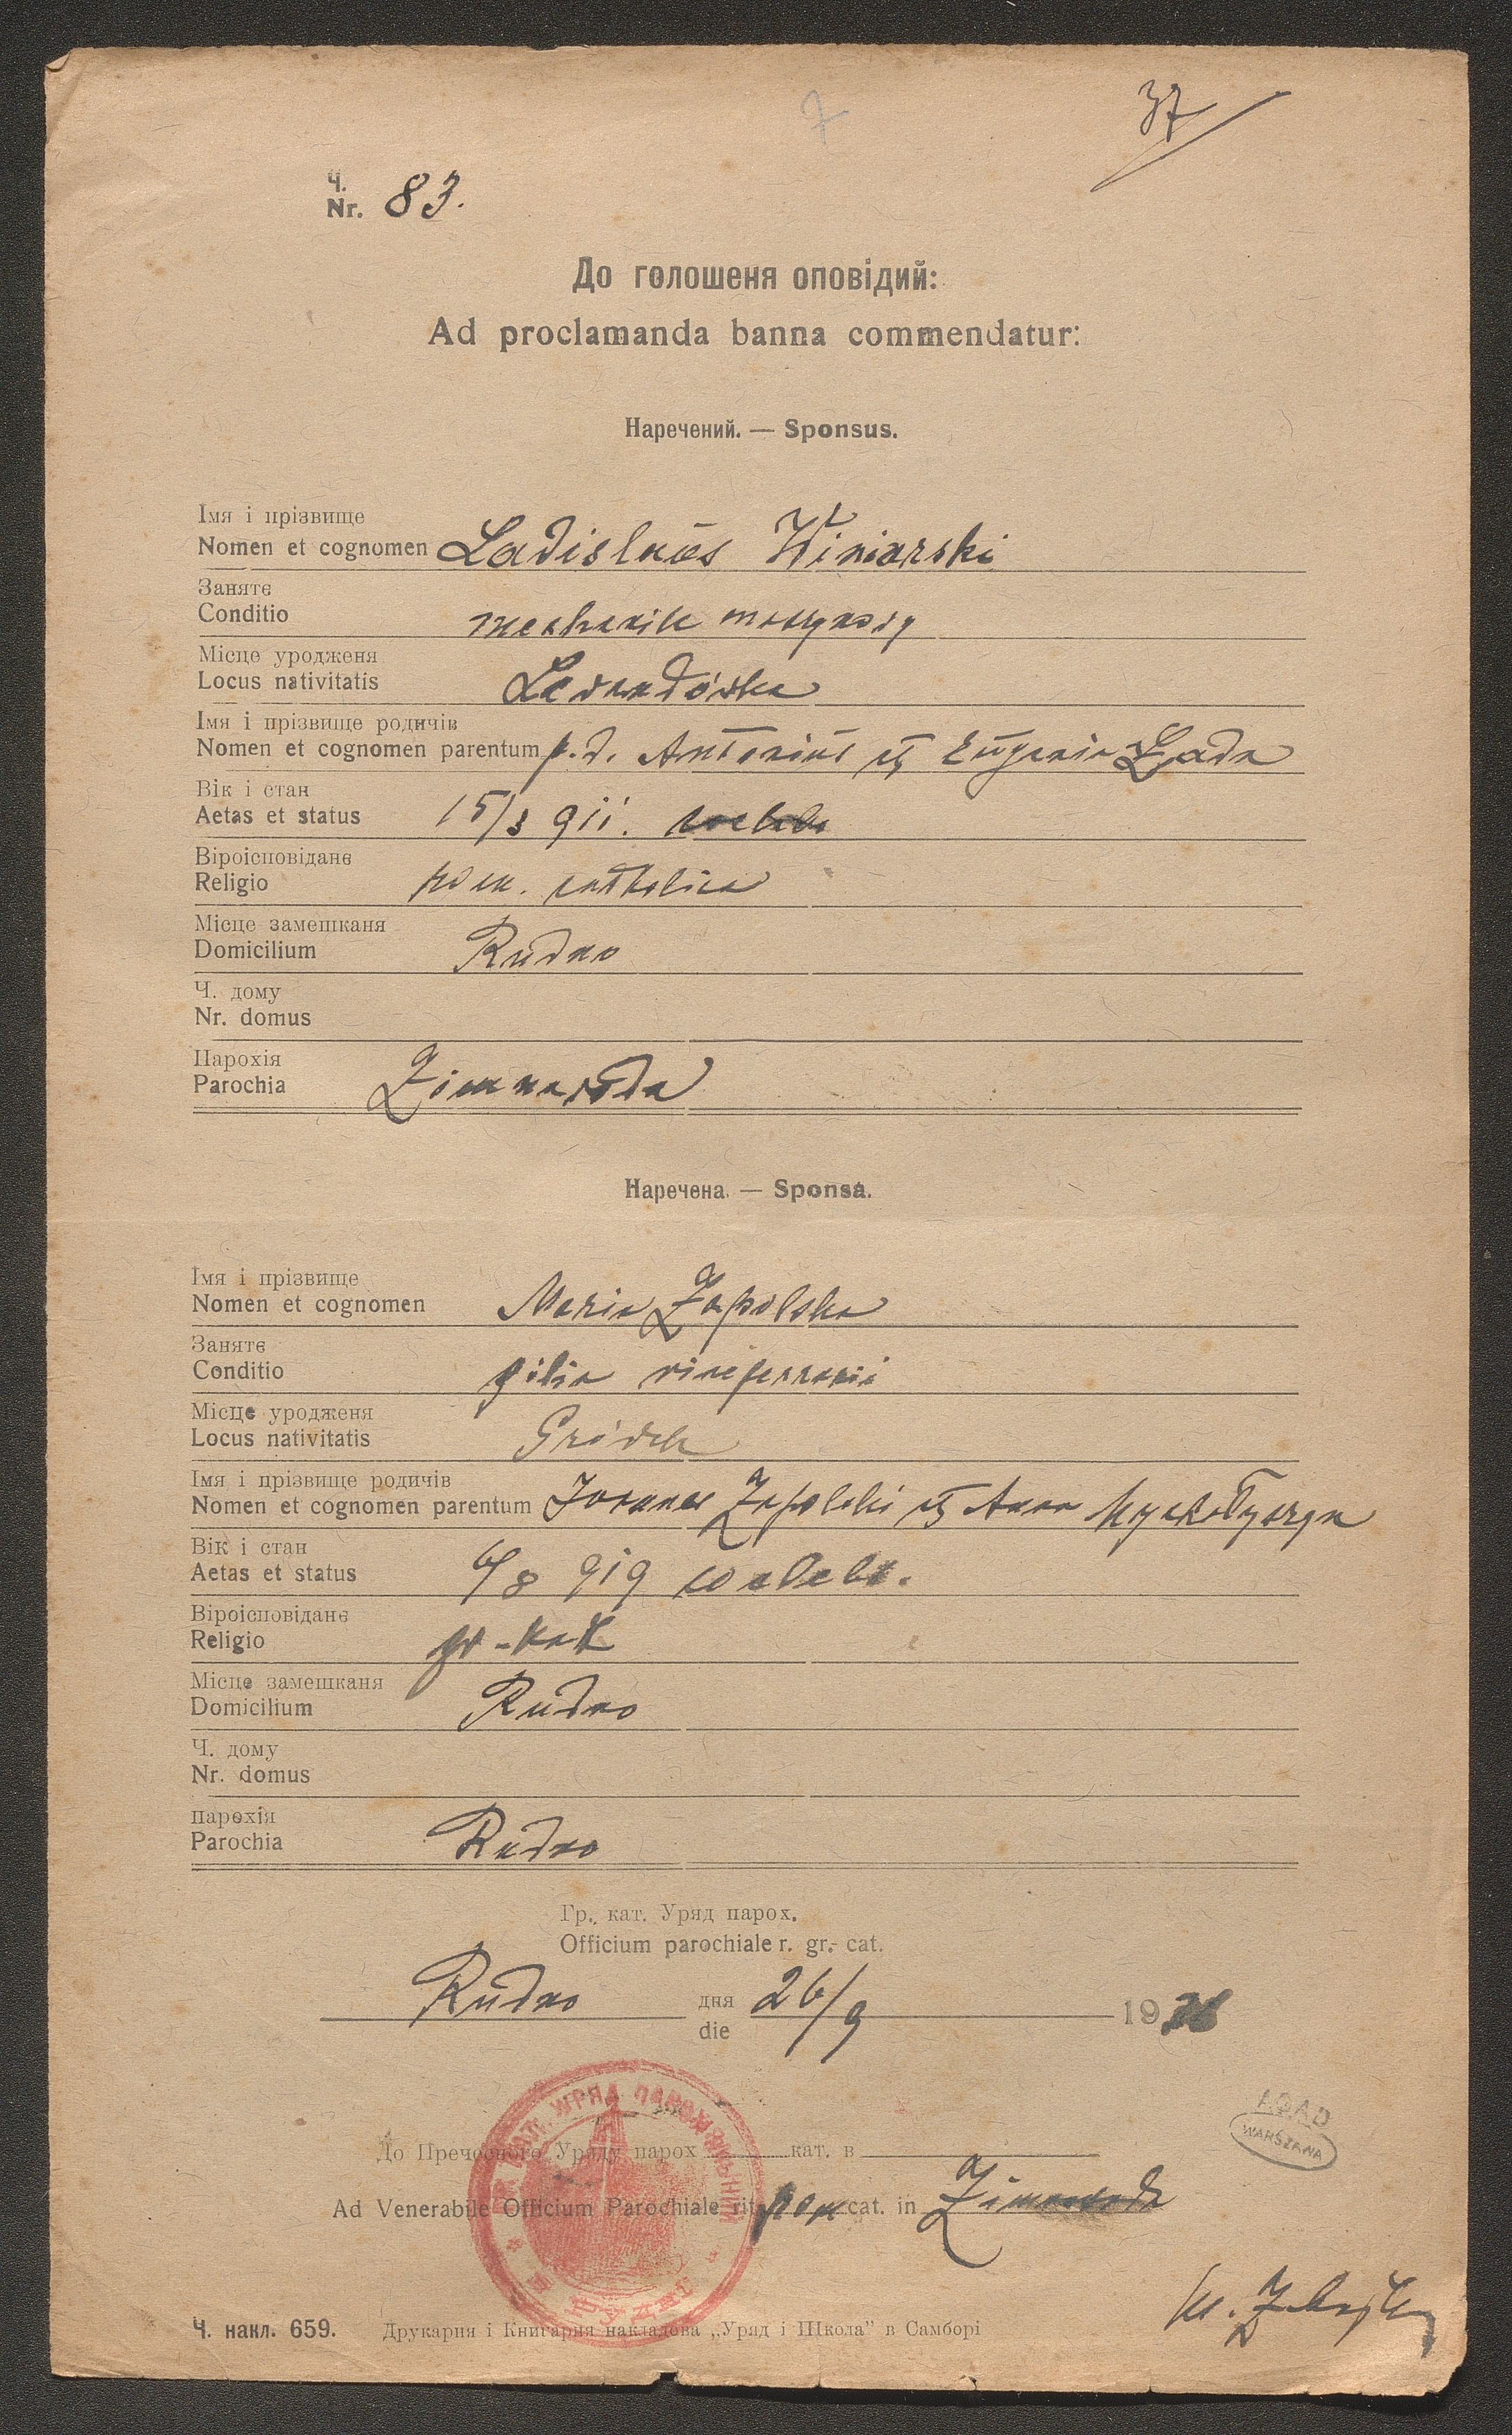 7
37
Ч.
Nr. 83.
До голошеня оповідий:
Ad proclamanda banna commendatur:
Наречений. — Sponsus.
Імя і прізвище
Nomen et cognomen Ladislaŭs Winiarski
Занятє
Conditio mechanik maszynowy
Місце уродженя
Locus nativitatis Lewandówka
Імя і прізвище родичів
Nomen et cognomen parentum p. d. Antoniŭs et Eŭgenia Łada
Вік і стан
Aetas et status 15/3 911. coelebs
Віроісповіданє
Religio rom. catholica
Місце замешканя
Domicilium Rŭdno
Ч. дому
Nr. domus
Парохія
Parochia Zimnawoda
Наречена. — Sponsa.
Імя і прізвище
Nomen et cognomen Maria Zapolska
Занятє
Conditio filia viae ferrarii
Місце уродженя
Locus nativitatis Gródek
Імя і прізвище родичів
Nomen et cognomen parentum Joannes Zapolski et Anna
Вік і стан
Aetas et status 6/8 919 coelebs.
Віроісповіданє
Religio gr-kat
Місце замешканя
Domicilium Rudno
Ч. дому
Nr. domus
парохія
Parochia Rudno
Гр. кат. Уряд парох.
Officium parochiale r. gr.- cat.
Rŭdno дня 26/9 19
die
AGAD
WARSZAWA
До Пречесного Уряду парох кат. в
Ad Venerabile Officium Parochiale rit. rom cat. in Zimnawoda
Ч. накл. 659. Друкарня і Книгарня накладова „Уряд і Школа” в Самборі